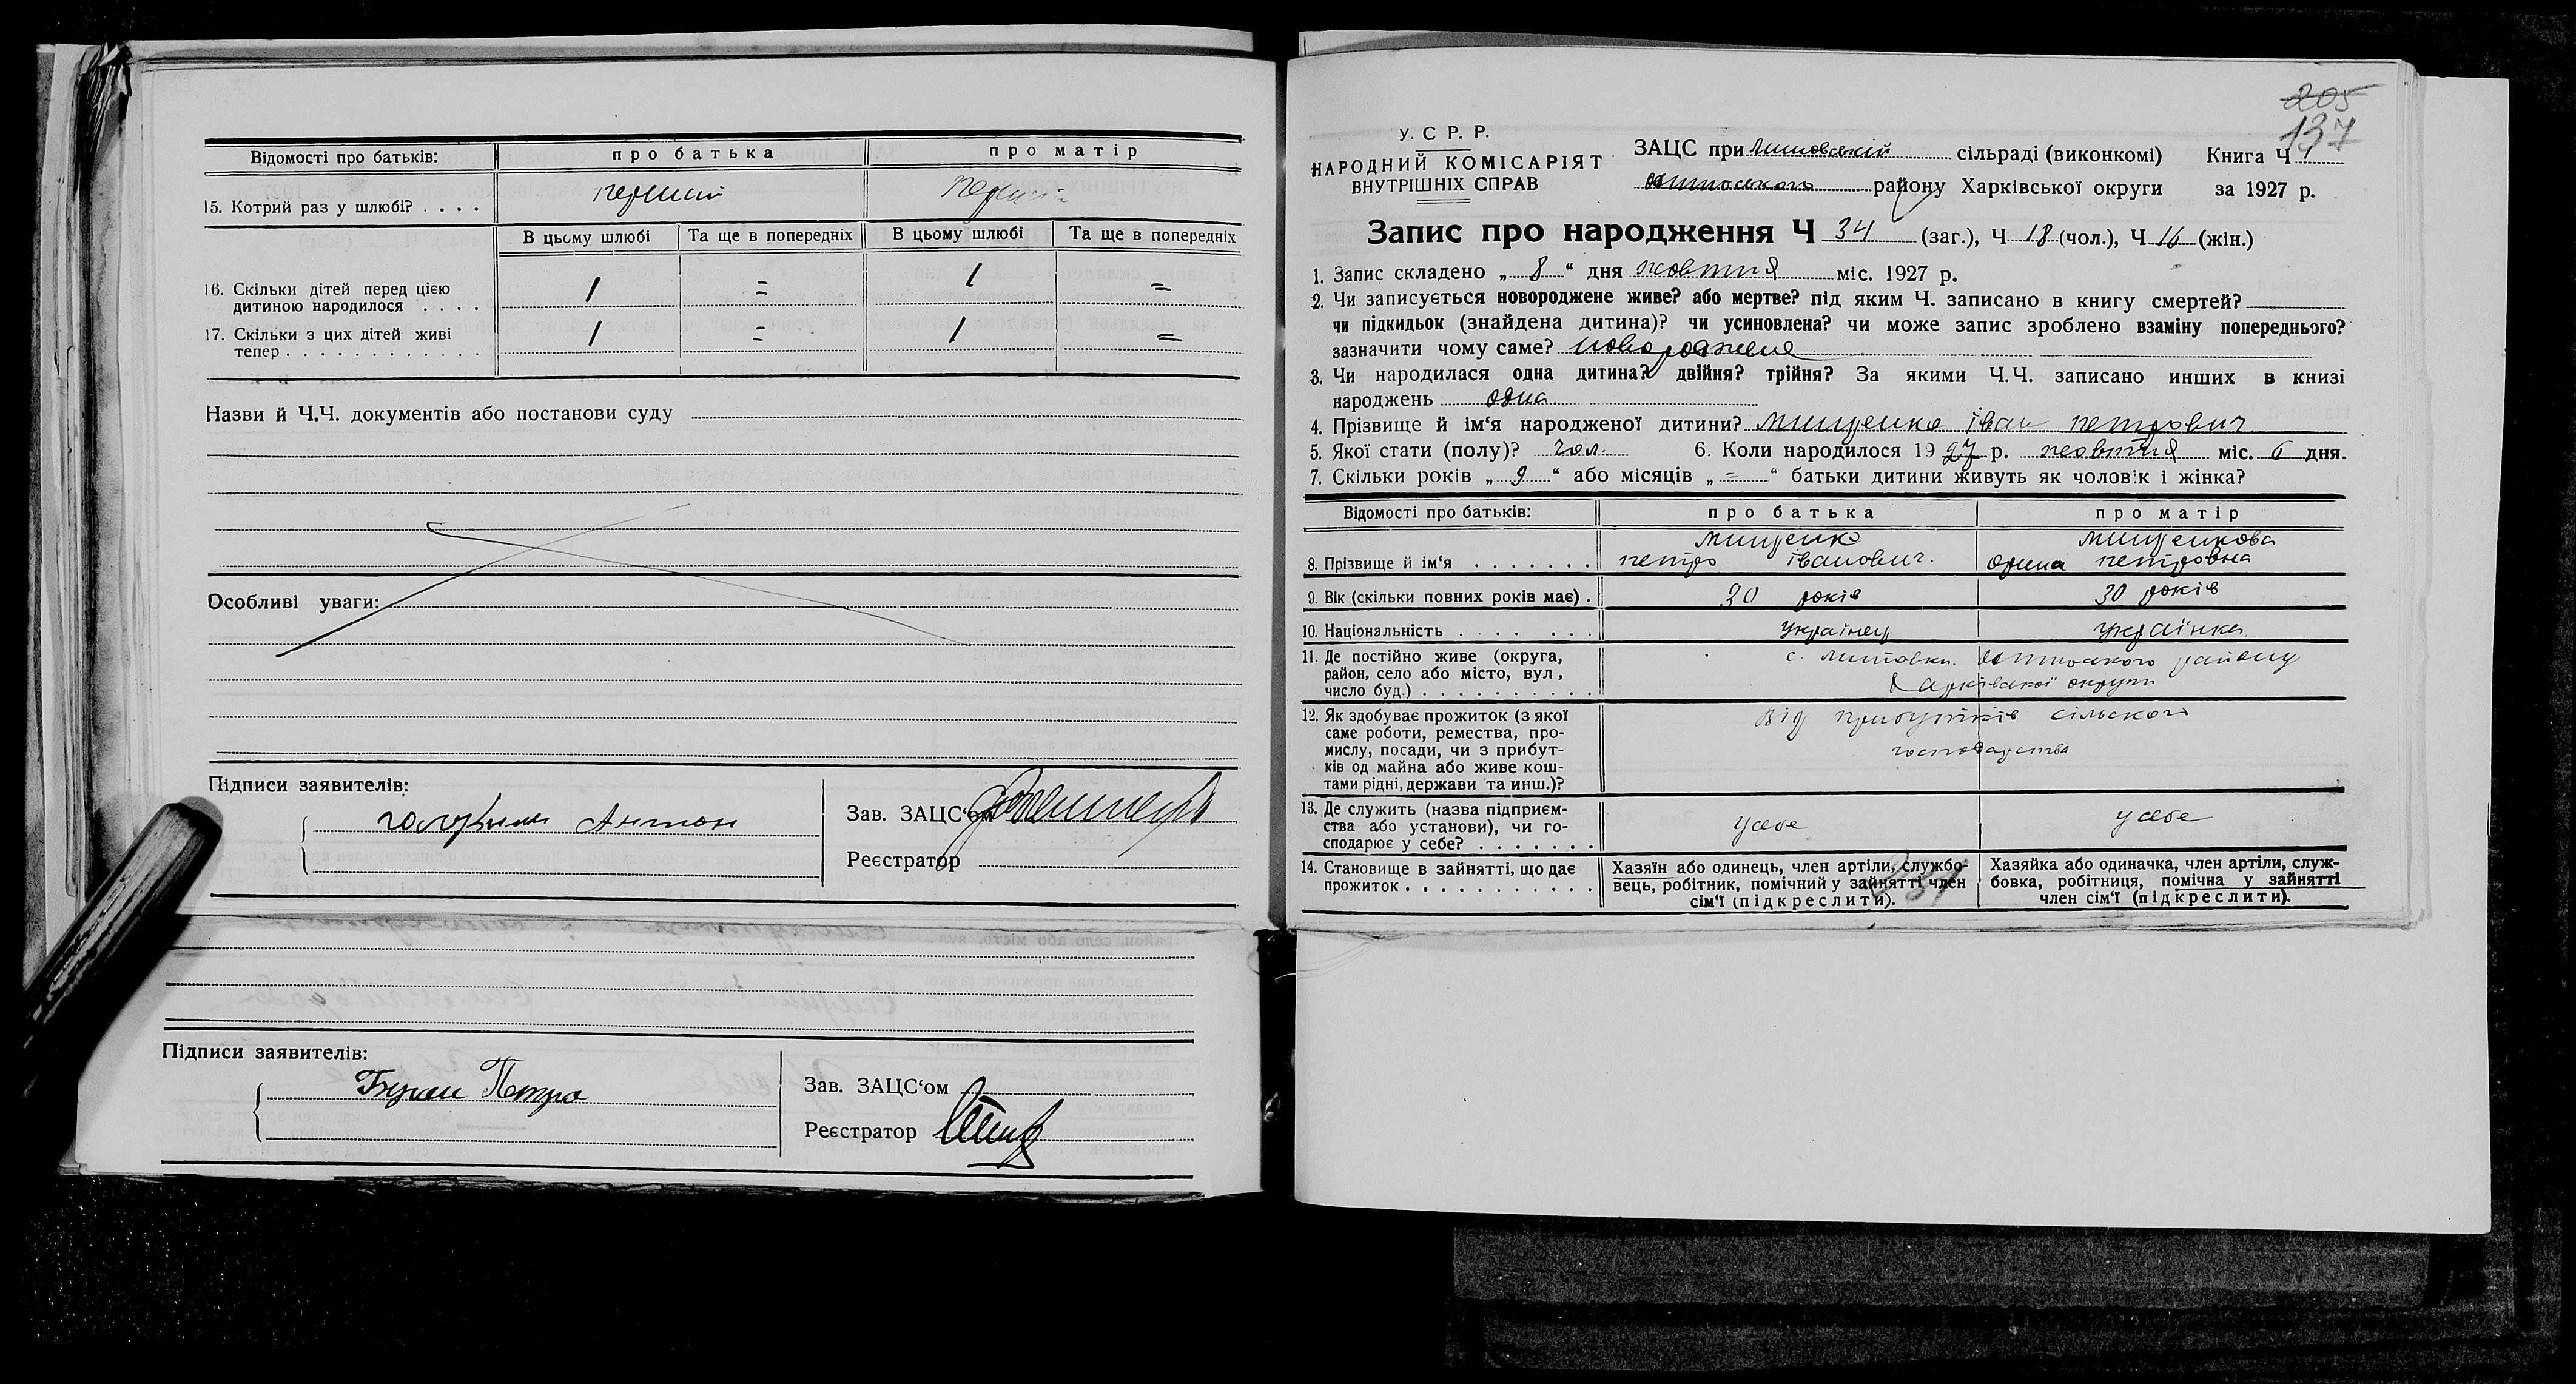 Відомості про батьків: про батька про матір
15. Котрий раз у шлюбі? . . . . перший перший
В цьому шлюбі Та ще в попередніх В цьому шлюбі Та ще в попередніх
16. Скільки дітей перед цією
дитиною народилося . . . . 1 = 1 =
17. Скільки з цих дітей живі
тепер . . . . . . . . . . . . 1 = 1 =
Назви й Ч.Ч. документів або постанови суду
Особливі уваги:
Підписи заявителів:
Антон
Зав. ЗАЦС‘ом
Реєстратор
Підписи заявителів:
Петро
Зав. ЗАЦС‘ом
Реєстратор
205
137
У. С Р. Р.
НАРОДНИЙ КОМІСАРІЯТ
ВНУТРІШНІХ СПРАВ
ЗАЦС при сільраді (виконкомі) Книга Ч 1
району Харківської округи за 1927 р.
Запис про народження Ч 34 (заг.), Ч 18 (чол.), Ч 16 (жін.)
1. Запис складено „ 8 “ дня жовтня міс. 1927 р.
2. Чи записується новороджене живе? або мертве? під яким Ч. записано в книгу смертей?
чи підкидьок (знайдена дитина)? чи усиновлена? чи може запис зроблено взаміну попереднього?
зазначити чому саме? новорожене
3. Чи народилася одна дитина? двійня? трійня? За якими Ч.Ч. записано инших в книзі
народжень одна
4. Прізвище й ім‘я народженої дитини? Мищенко Іван Петрович
5. Якої стати (полу)? чол. 6. Коли народилося 1927 р. жовтня міс. 6 дня.
7. Скільки років „ 9 “ або місяців „ = “ батьки дитини живуть як чоловік і жінка?
Відомості про батьків: про батька про матір
Мищенко Мищенкова
8. Прізвище й ім‘я . . . . . . . Петро Іванович. Орина Петровна
9. Вік (скільки повних років має) . 30 років 30 років
10. Національність . . . . . . . українец українка
11. Де постійно живе (округа,
район, село або місто, вул,
число буд.) . . . . . . . . . . с. району
Харківської округи
12. Як здобуває прожиток (з якої
саме роботи, ремества, про-
мислу, посади, чи з прибут-
ків од майна або живе кош-
тами рідні, держави та инш.)? Від прибутків сільского
господарства
13. Де служить (назва підприєм-
ства або установи), чи го-
сподарює у себе? . . . . . . . у себе у себе
14. Становище в зайнятті, що дає
прожиток . . . . . . . . . . .
Хазяїн або одинець, член артіли, службо-
вець, робітник, помічний у зайнятті член
сім‘ї (підкреслити).
Хазяйка або одиначка, член артіли, служ-
бовка, робітниця, помічна у зайнятті
член сім‘ї (підкреслити).